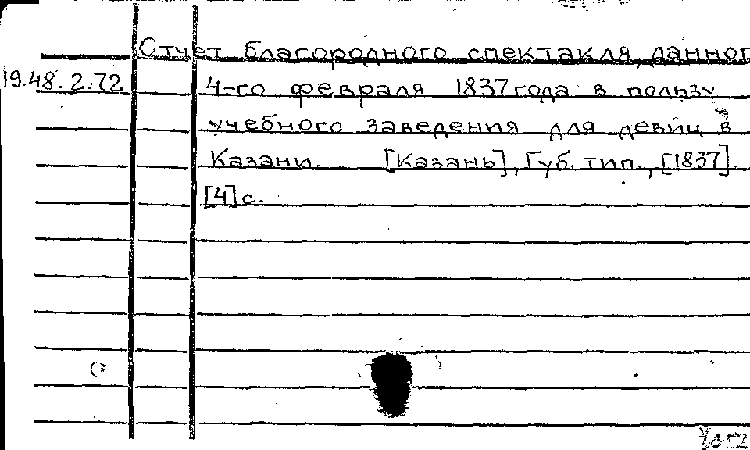 Отчет благородного спектакля, данног
19.48.2.72 4-го февраля 1837 года в пользу
учебного заведения для девиц в
Казани. [Казань], Губ. тип., [1837].
[4] с.